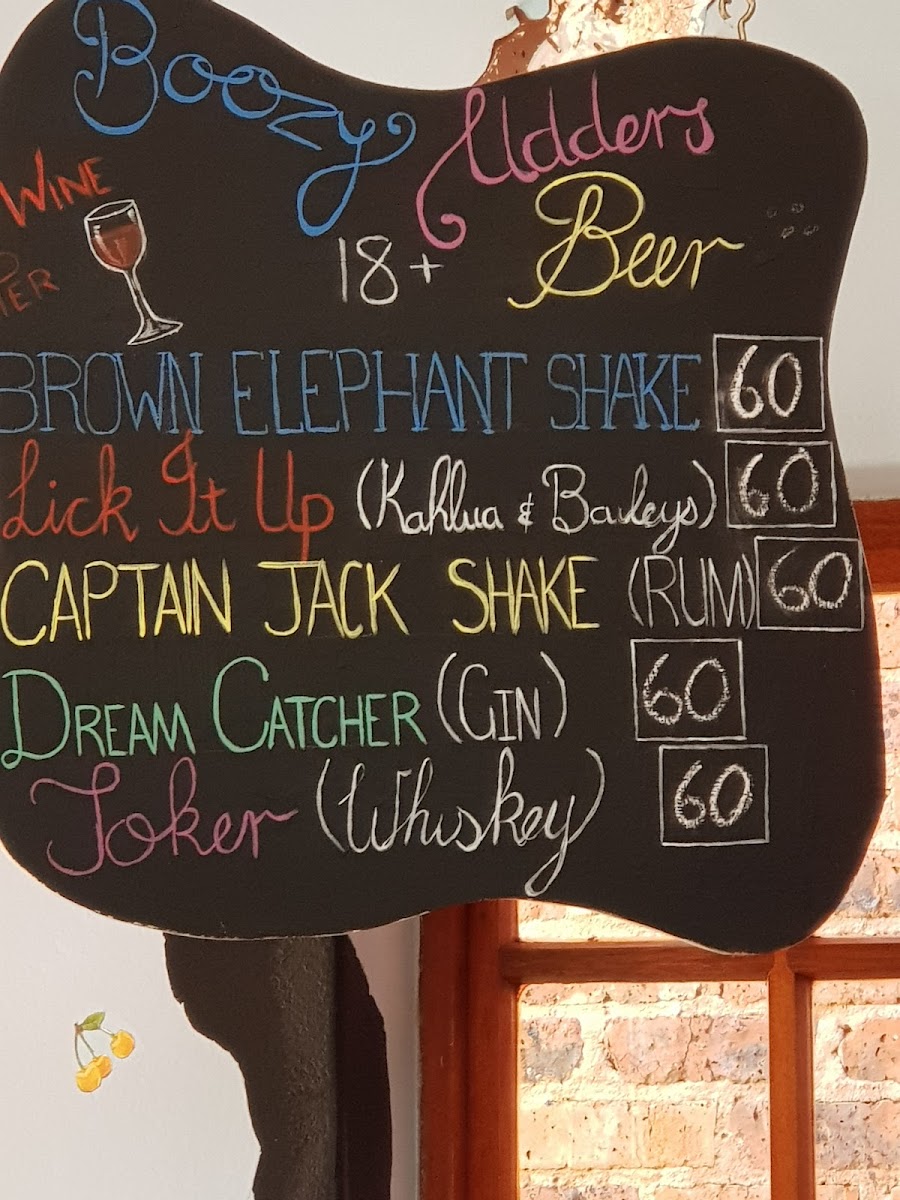 Boozy Udders
WINE
18+
Beer
BROWN ELEPHANT SHAKE 60
Lick It Up (Kahlua & Baileys) 60
CAPTAIN JACK SHAKE (RUM) 60
DREAM CATCHER (GIN) 60
Joker (Whiskey) 60